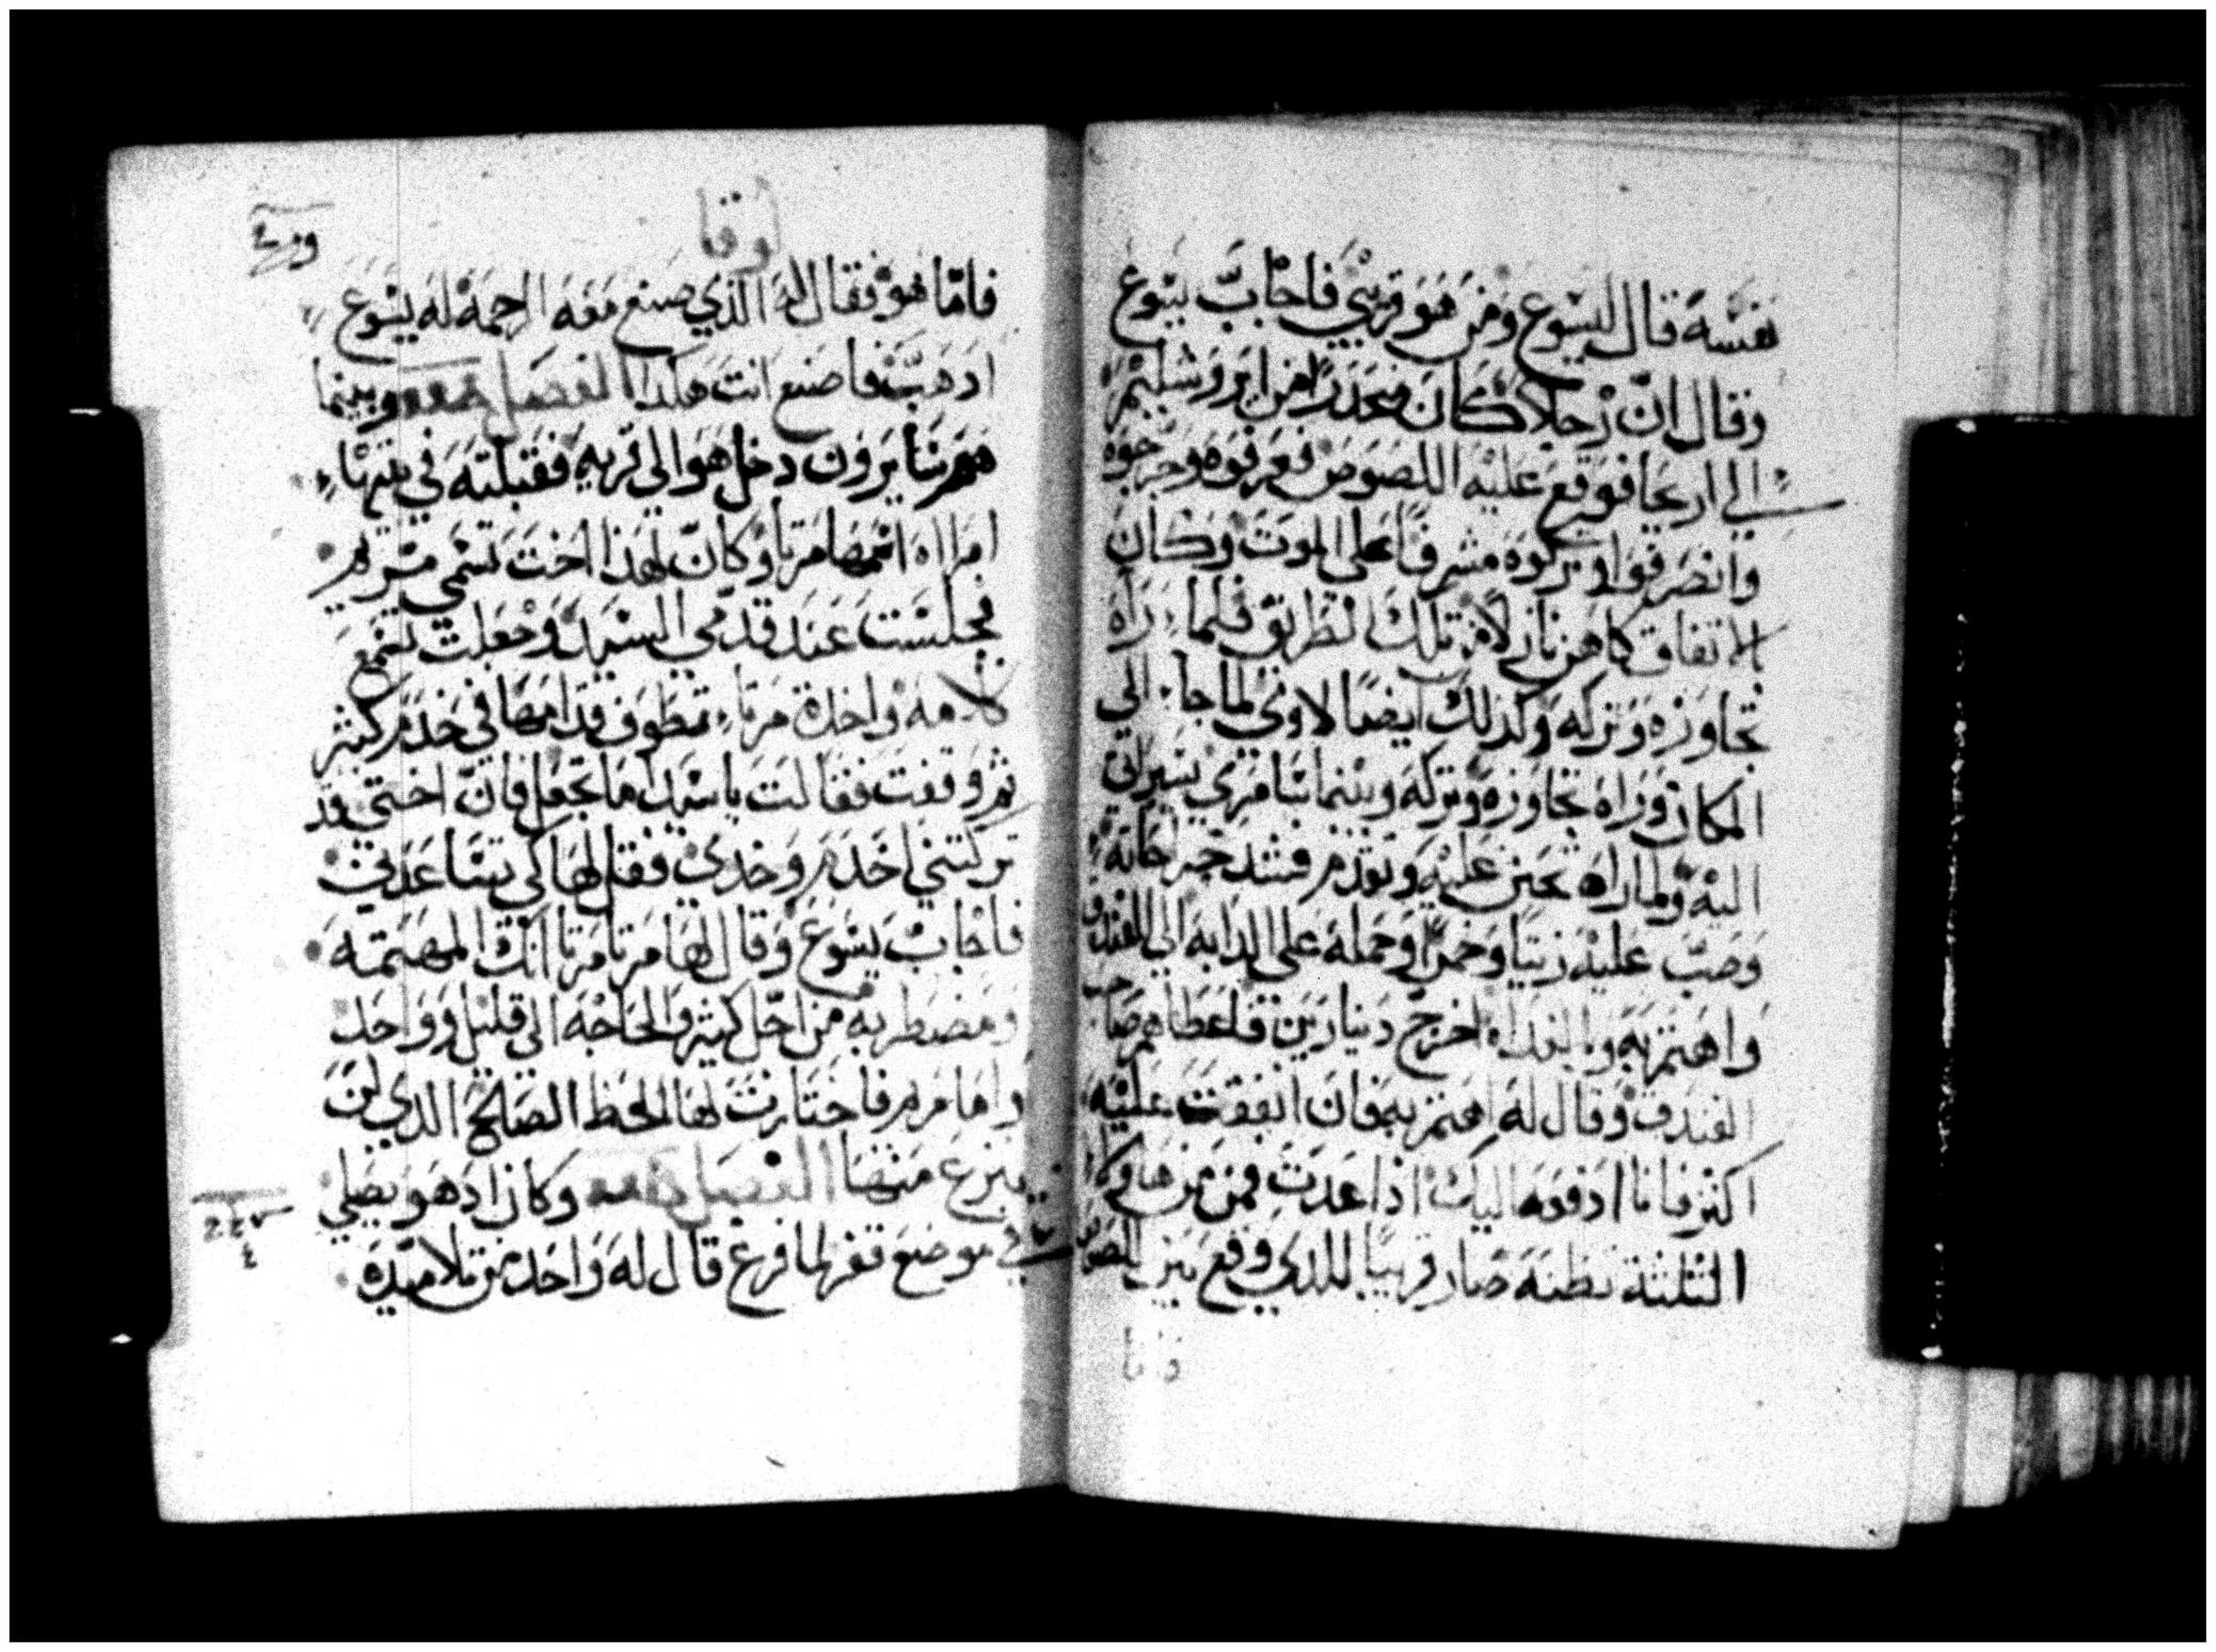 نفسه قال ليسوع ومن هو قريبي فاجاب يسوع
وقال ان رجلا كان منحدرا من ايروشليم
الي اريحا فوقع عليه اللصوص فعرفوه وجرحوه
وانصرفوا وتركوه مشرفا علي الموت وكان
بالاتفاق كاهن نازلا من تلك الطريق فلما راه
تجاوزه وتركه وكذلك ايضا لاوي لما جا الي
المكان وراه تجاوزه وتركه وبينما سامري يسير اتى
اليه ولما راه تحنن عليه وتقدم فشد جراحاته
وصب عليه زيتا وخمرا وحمله علي الدابه الي الفندق
واهتم به وبالغداه اخرج دينارين فاعطاهم صاحب
الفندق وقال له اهتم به فان انفقت عليه
اكثر فانا ادفعه اليك اذا عدت فمن من هاولا
الثلثة تظنه صار قريبا للذي وقع بين اللصوص
فاما
لوقا
فاما هو فقال له الذي صنع معه الرحمه له يسوع
ادهب فاصنع انت هكدا الفصل وبينما
هم سايرون دخل هو الي قريه فقبلته في بيتها
امراه اسمها مرتا وكان لهذا اخت تسمي مريم
فجلست عند قدمي السيد وجعلت تسمع
كلامه واحدة مرتا تطوف قدامها في خدم كثير
ثم وقفت فقالت يا سيد اما تجعل فان اختي قد
تركتني اخدم وحدي فقل لها كي تساعدني
فاجاب يسوع وقال لها مرتا مرتا انك المهتمه
ومضطربه من اجل كثير والحاجه الي قليل وواحد
واما مريم فاختارت لها الحظ الصالح الدي لن
ينزع منها الفصل وكان اد هو يصلي
في موضع قفر لما فرغ قال له واحد من تلاميده